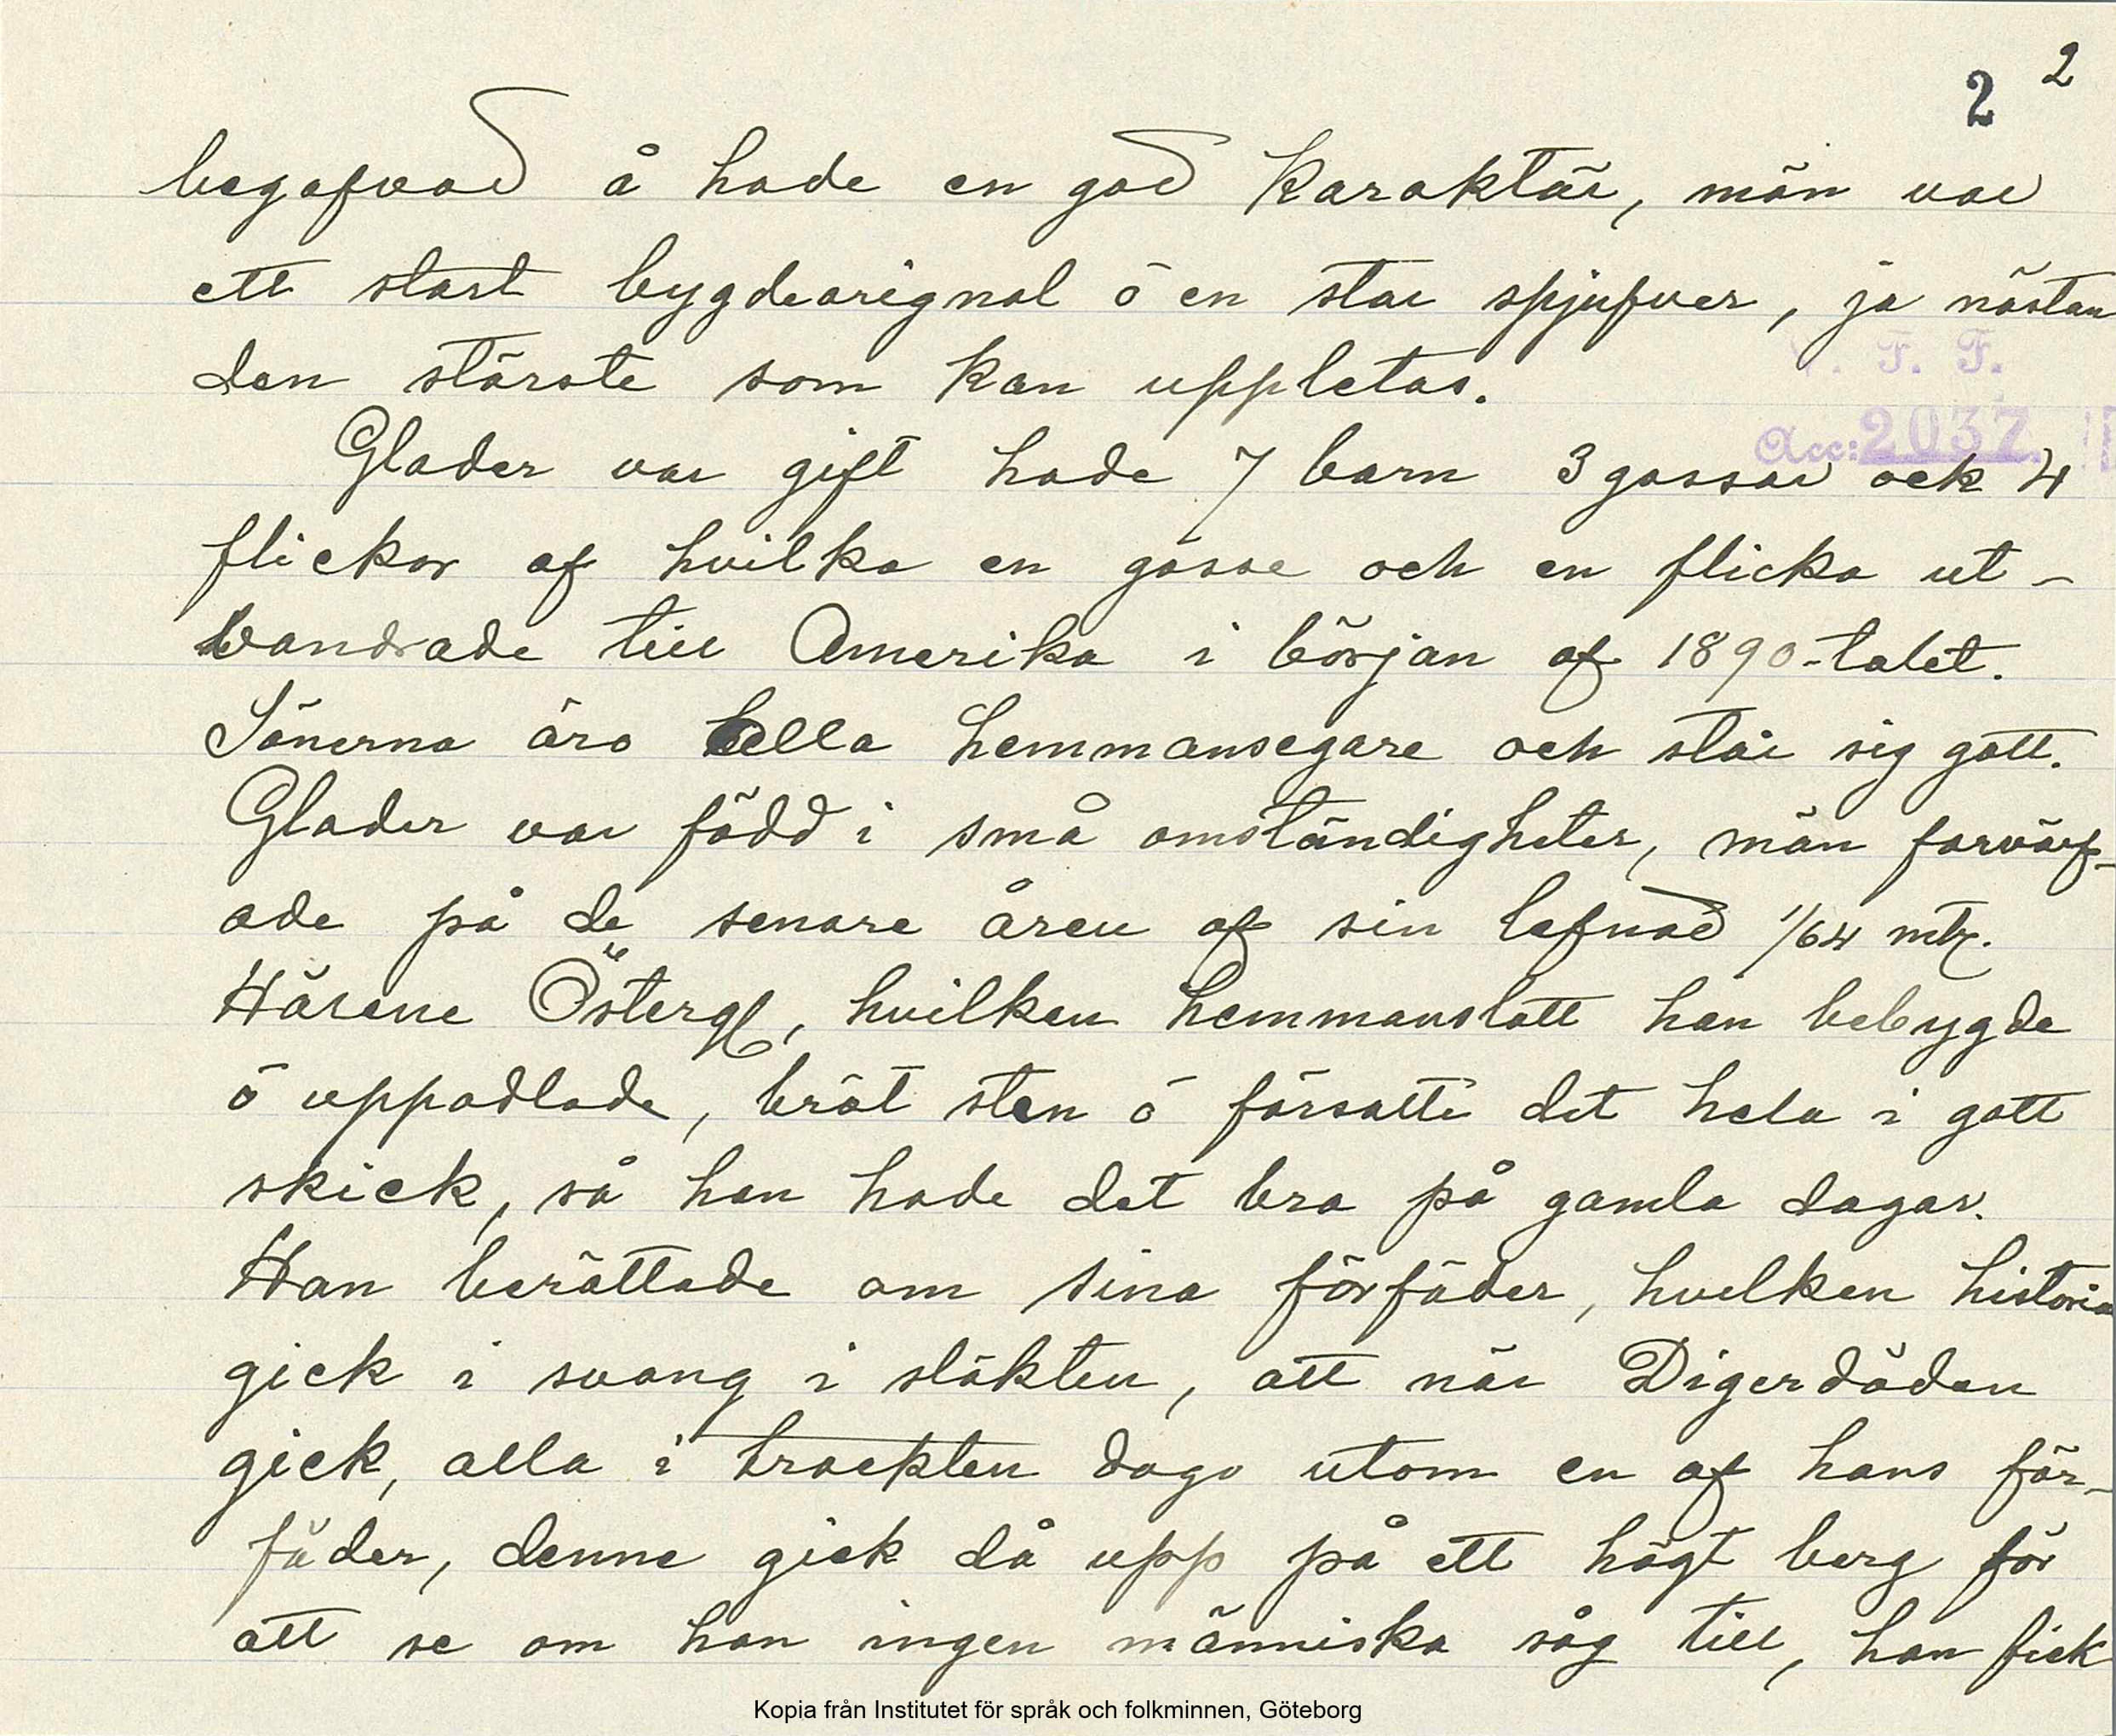 2 2
begafvad å hade en god karaktär, män var
ett stort bygdeorignal ö en stor spjufver, ja nästan
den störste som kan uppletas.
V. F. F.
Acc: 2037.
Glader var gift hade 7 barn 3 gossar ock 4
flickor af hvilka en gosse och en flicka ut-
vandrade till Amerika i början af 1890-talet.
Sönerna äro alla hemmansegare och står sig gott.
Glader var född i små omständigheter, män forvärf-
ade på de senare åren af sin lefnad 1/64 mtl.
Härene Österg, hvilken hemmanslott han bebygde
ö uppodlade, bröt sten ö försatte det hela i gott
skick, så han hade det bra på gamla dagar.
Han berättade om sina förfäder, hvilken historia
gick i svang i släkten, att när Digerdöden
gick, alla i trackten dogo utom en af hans för-
fäder, denne gick då upp på ett högt berg för
att se om han ingen människa såg till, han fick
Kopia från Institutet för språk och folkminnen, Göteborg